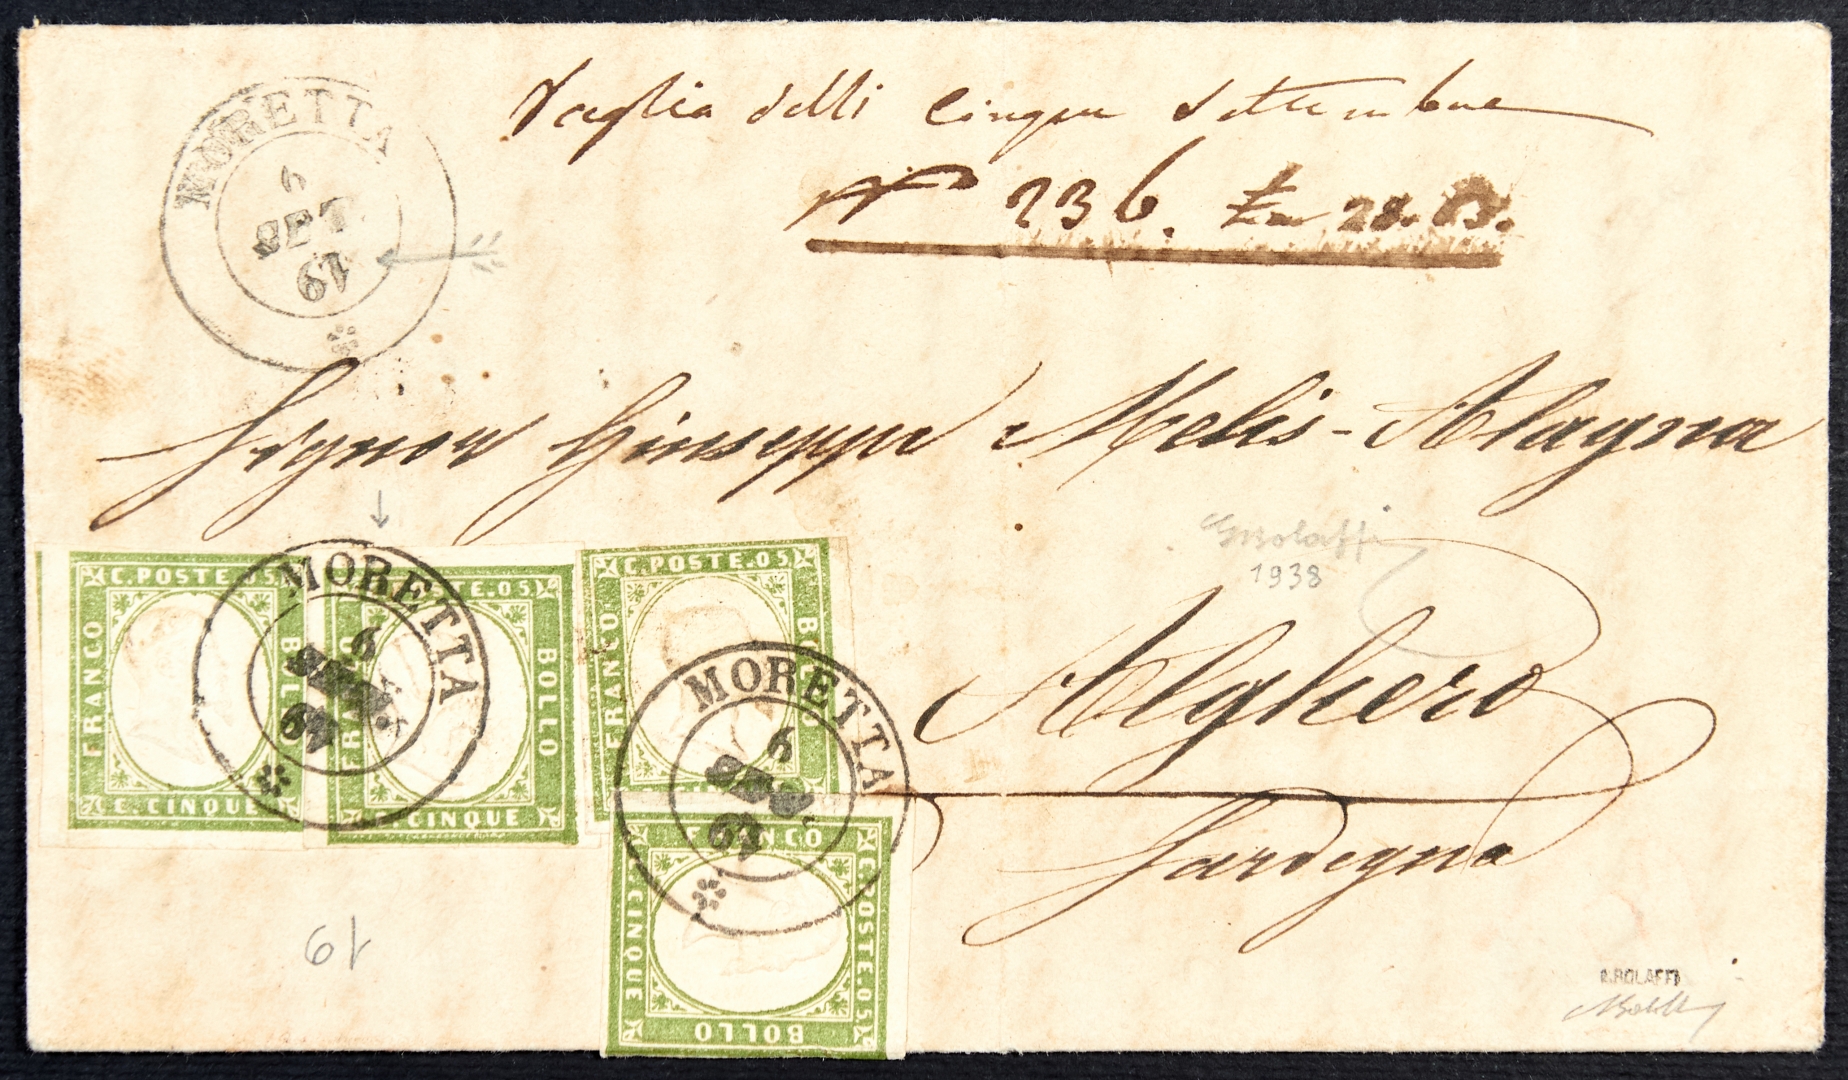 Vaglia delli Cinque Settembre
N° 236. Ln 28. 83.
MORETTA
6
SET
61
Signor Giuseppe Melis-Alagna
GBolaffi
1938
Alghero
Sardegna
C. POSTE. 05.
FRANCO
BOLLO
C. CINQUE
POSTE. 05.
FRANCO
BOLLO
C. CINQUE
MORETTA
6
SET
61
C. POSTE. 05.
FRANCO
BOLLO
MORETTA
6
SET
61
FRANCO
C. POSTE. 05.
CINQUE
BOLLO
61
A. BOLAFFI